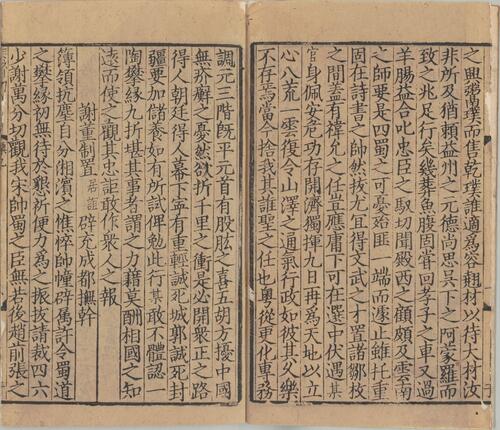 之興鬻璞而售乾璞誰適為容翻材以待大材汝
非所及猶賴益州之元德尚思吳下之阿蒙羅而
致之兆足行矣幾葬魚腹固嘗回孝子之車又過
羊腸益合叱忠臣之馭切聞殿西之顧頗及雲南
之師要是四蜀之可憂殆匪一端而遽止雖托重
固在詩書之帥然拔尤宜得文武之才置諸鄒枚
之間蓋有禕允之任豈應庸下可在選中伏遇某
官身佩安危功存開濟獨揮九日再為天地以立
心八荒一雲復令山澤之通氣行政如彼其久樂
不存焉當今捨我其誰聖之任也粵從更化專務
調元三階既平元首有股肱之喜五胡方擾中國
無疥癬之憂然欲折千里之衝是必開衆正之路
得人朝廷得人幕下寔有重輕誠死城郭誠死封
疆要加儲養如有所試俾勉此行某敢不體認
陶甓攀緣九折甚其事者謂之力藉莫酬相國之知
遠而使之觀其忠詎敢作衆人之報
謝董制置若誰辟充成都撫幹
簿領抗塵自分湘瀕之憔悴帥幢辟僞許令蜀道
之攀緣初無待於懇祈便力為之振拔請裁四六
少謝萬分切觀我宋帥蜀之臣無若後趙前張之